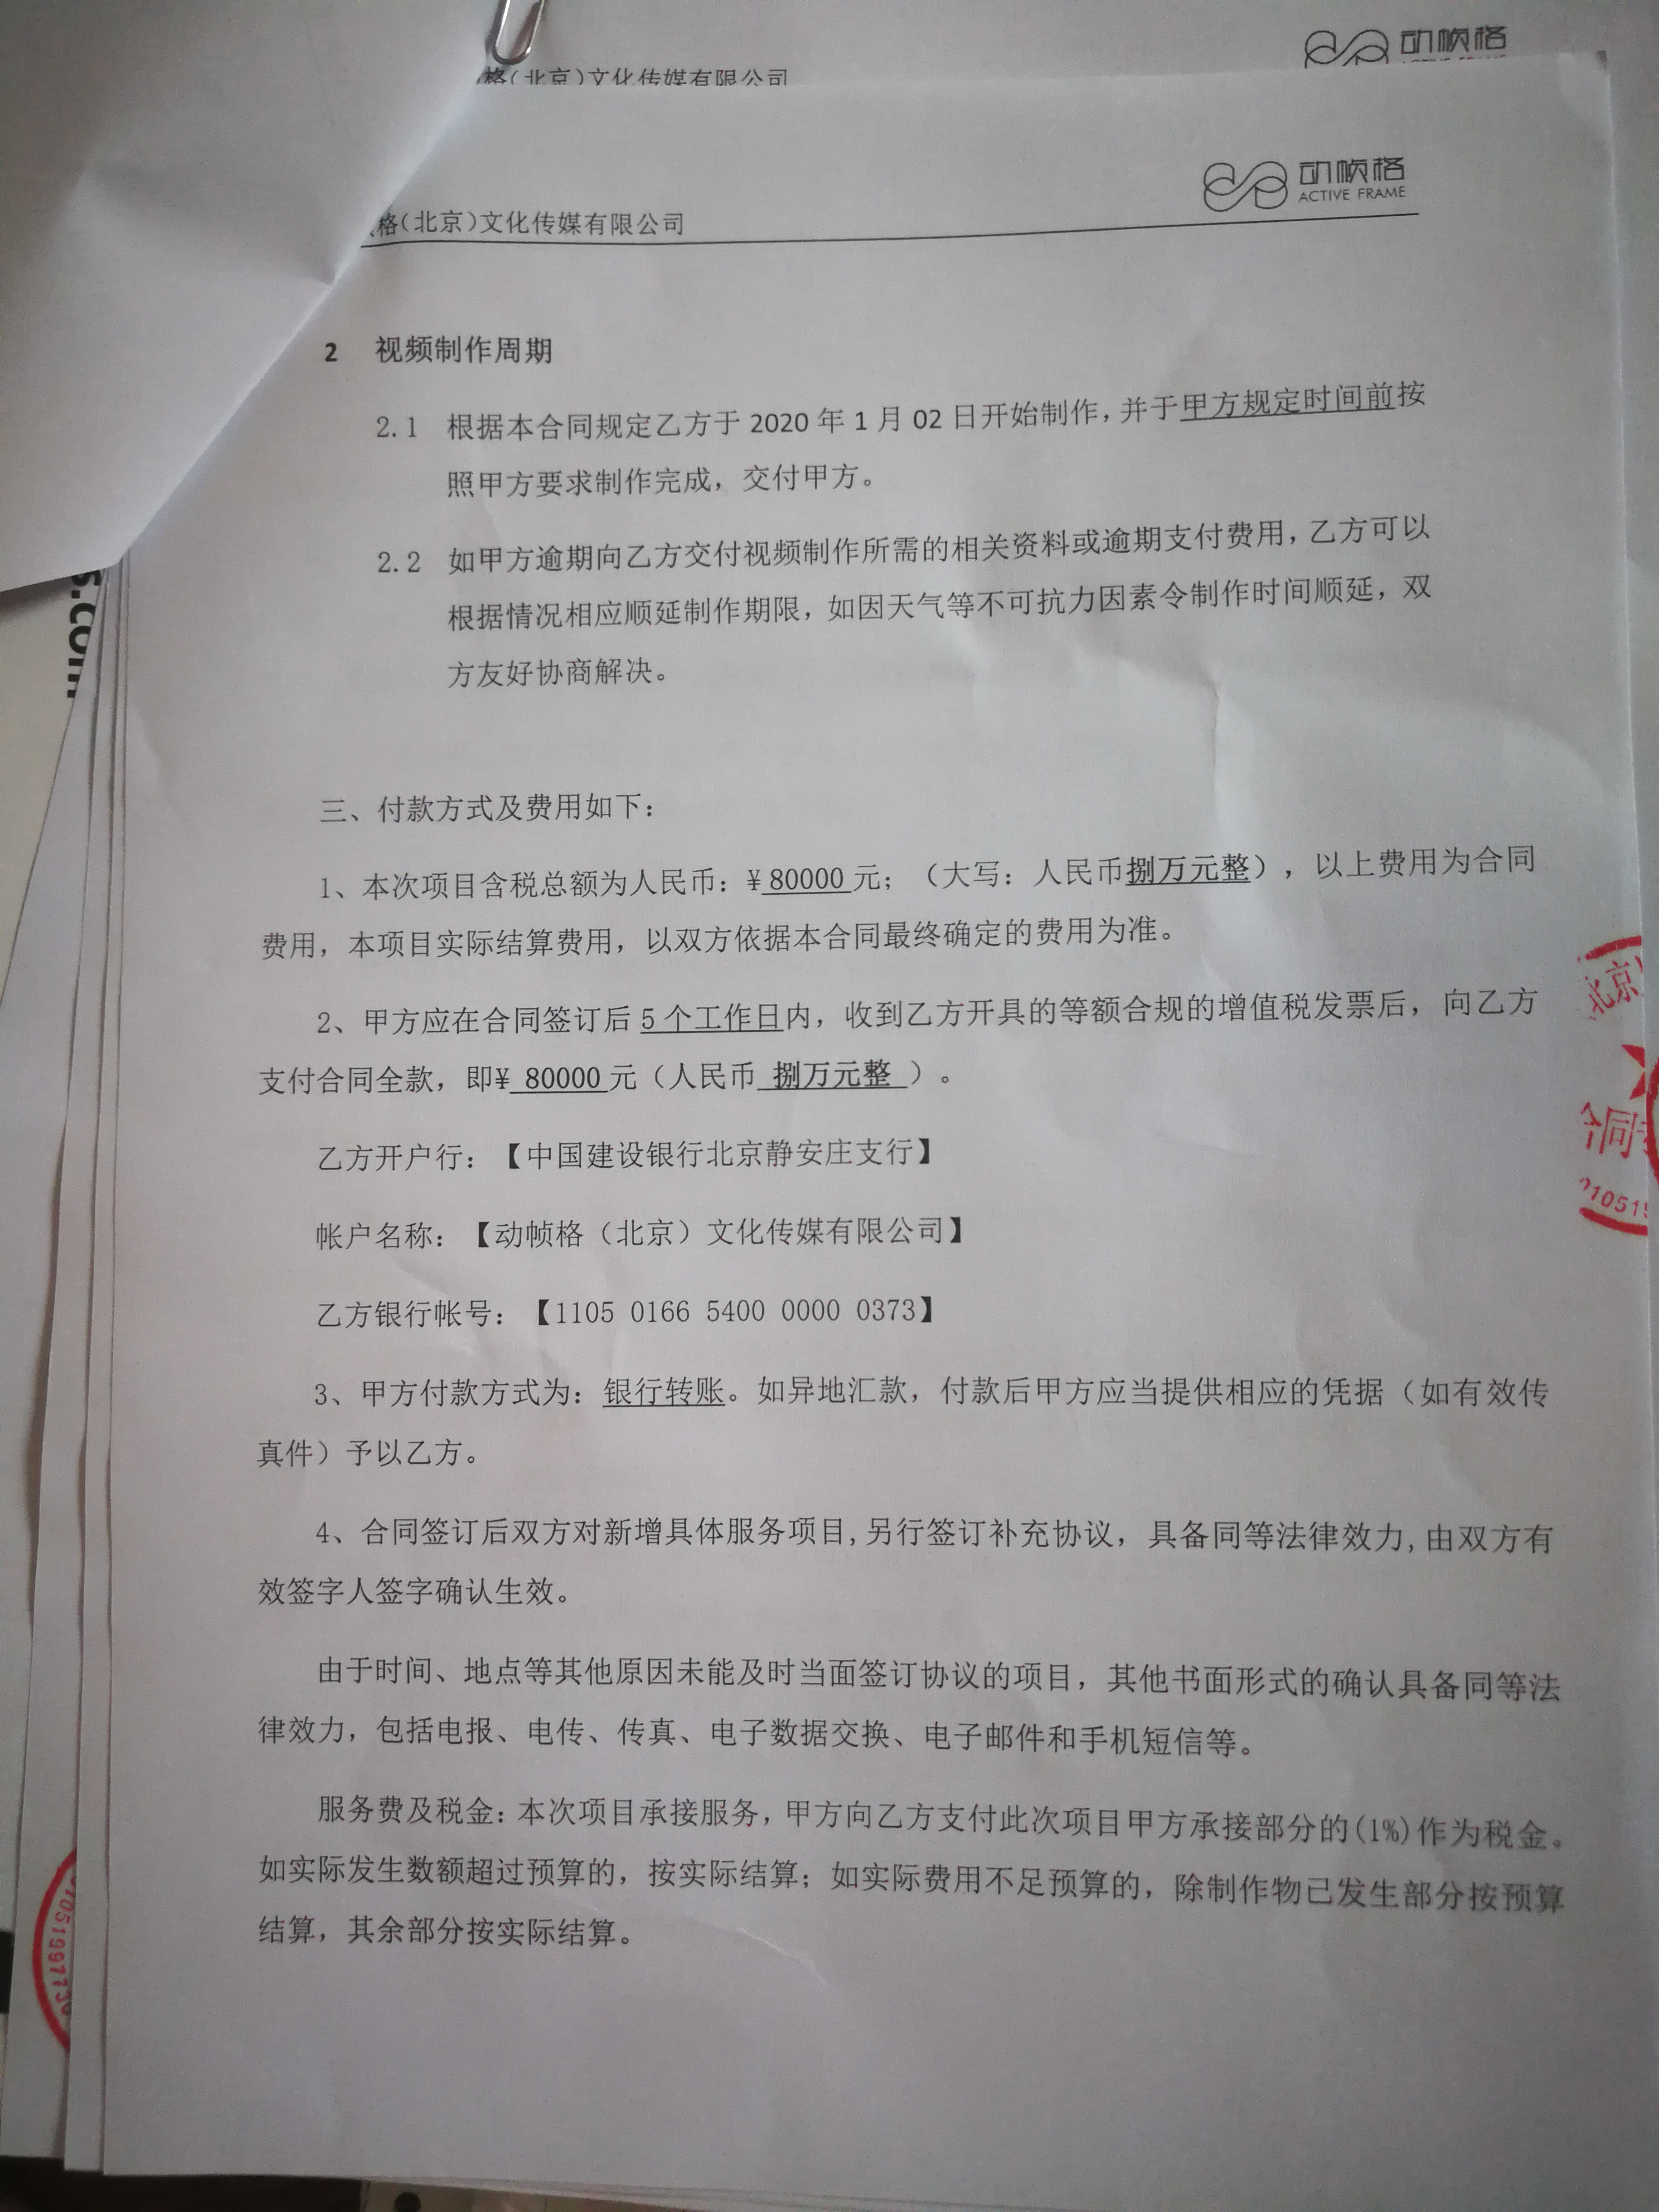 动帧格
格(北京)文化传媒有限公司
动帧格
ACTIVE FRAME
格(北京)文化传媒有限公司
2 视频制作周期
2.1 根据本合同规定乙方于 2020 年 1 月 02 日开始制作，并于甲方规定时间前按
照甲方要求制作完成，交付甲方。
2.2 如甲方逾期向乙方交付视频制作所需的相关资料或逾期支付费用，乙方可以
根据情况相应顺延制作期限，如因天气等不可抗力因素令制作时间顺延，双
方友好协商解决。
s.com
三、付款方式及费用如下：
1、本次项目含税总额为人民币：¥ 80000 元；（大写：人民币捌万元整），以上费用为合同
费用，本项目实际结算费用，以双方依据本合同最终确定的费用为准。
2、甲方应在合同签订后 5 个工作日内，收到乙方开具的等额合规的增值税发票后，向乙方
支付合同全款，即¥ 80000 元（人民币 捌万元整 ）。
乙方开户行：【中国建设银行北京静安庄支行】
帐户名称：【动帧格（北京）文化传媒有限公司】
乙方银行帐号：【1105 0166 5400 0000 0373】
3、甲方付款方式为：银行转账。如异地汇款，付款后甲方应当提供相应的凭据（如有效传
真件）予以乙方。
4、合同签订后双方对新增具体服务项目,另行签订补充协议，具备同等法律效力,由双方有
效签字人签字确认生效。
由于时间、地点等其他原因未能及时当面签订协议的项目，其他书面形式的确认具备同等法
律效力，包括电报、电传、传真、电子数据交换、电子邮件和手机短信等。
服务费及税金：本次项目承接服务，甲方向乙方支付此次项目甲方承接部分的(1%)作为税金。
如实际发生数额超过预算的，按实际结算；如实际费用不足预算的，除制作物已发生部分按预算
结算，其余部分按实际结算。
北京
合同